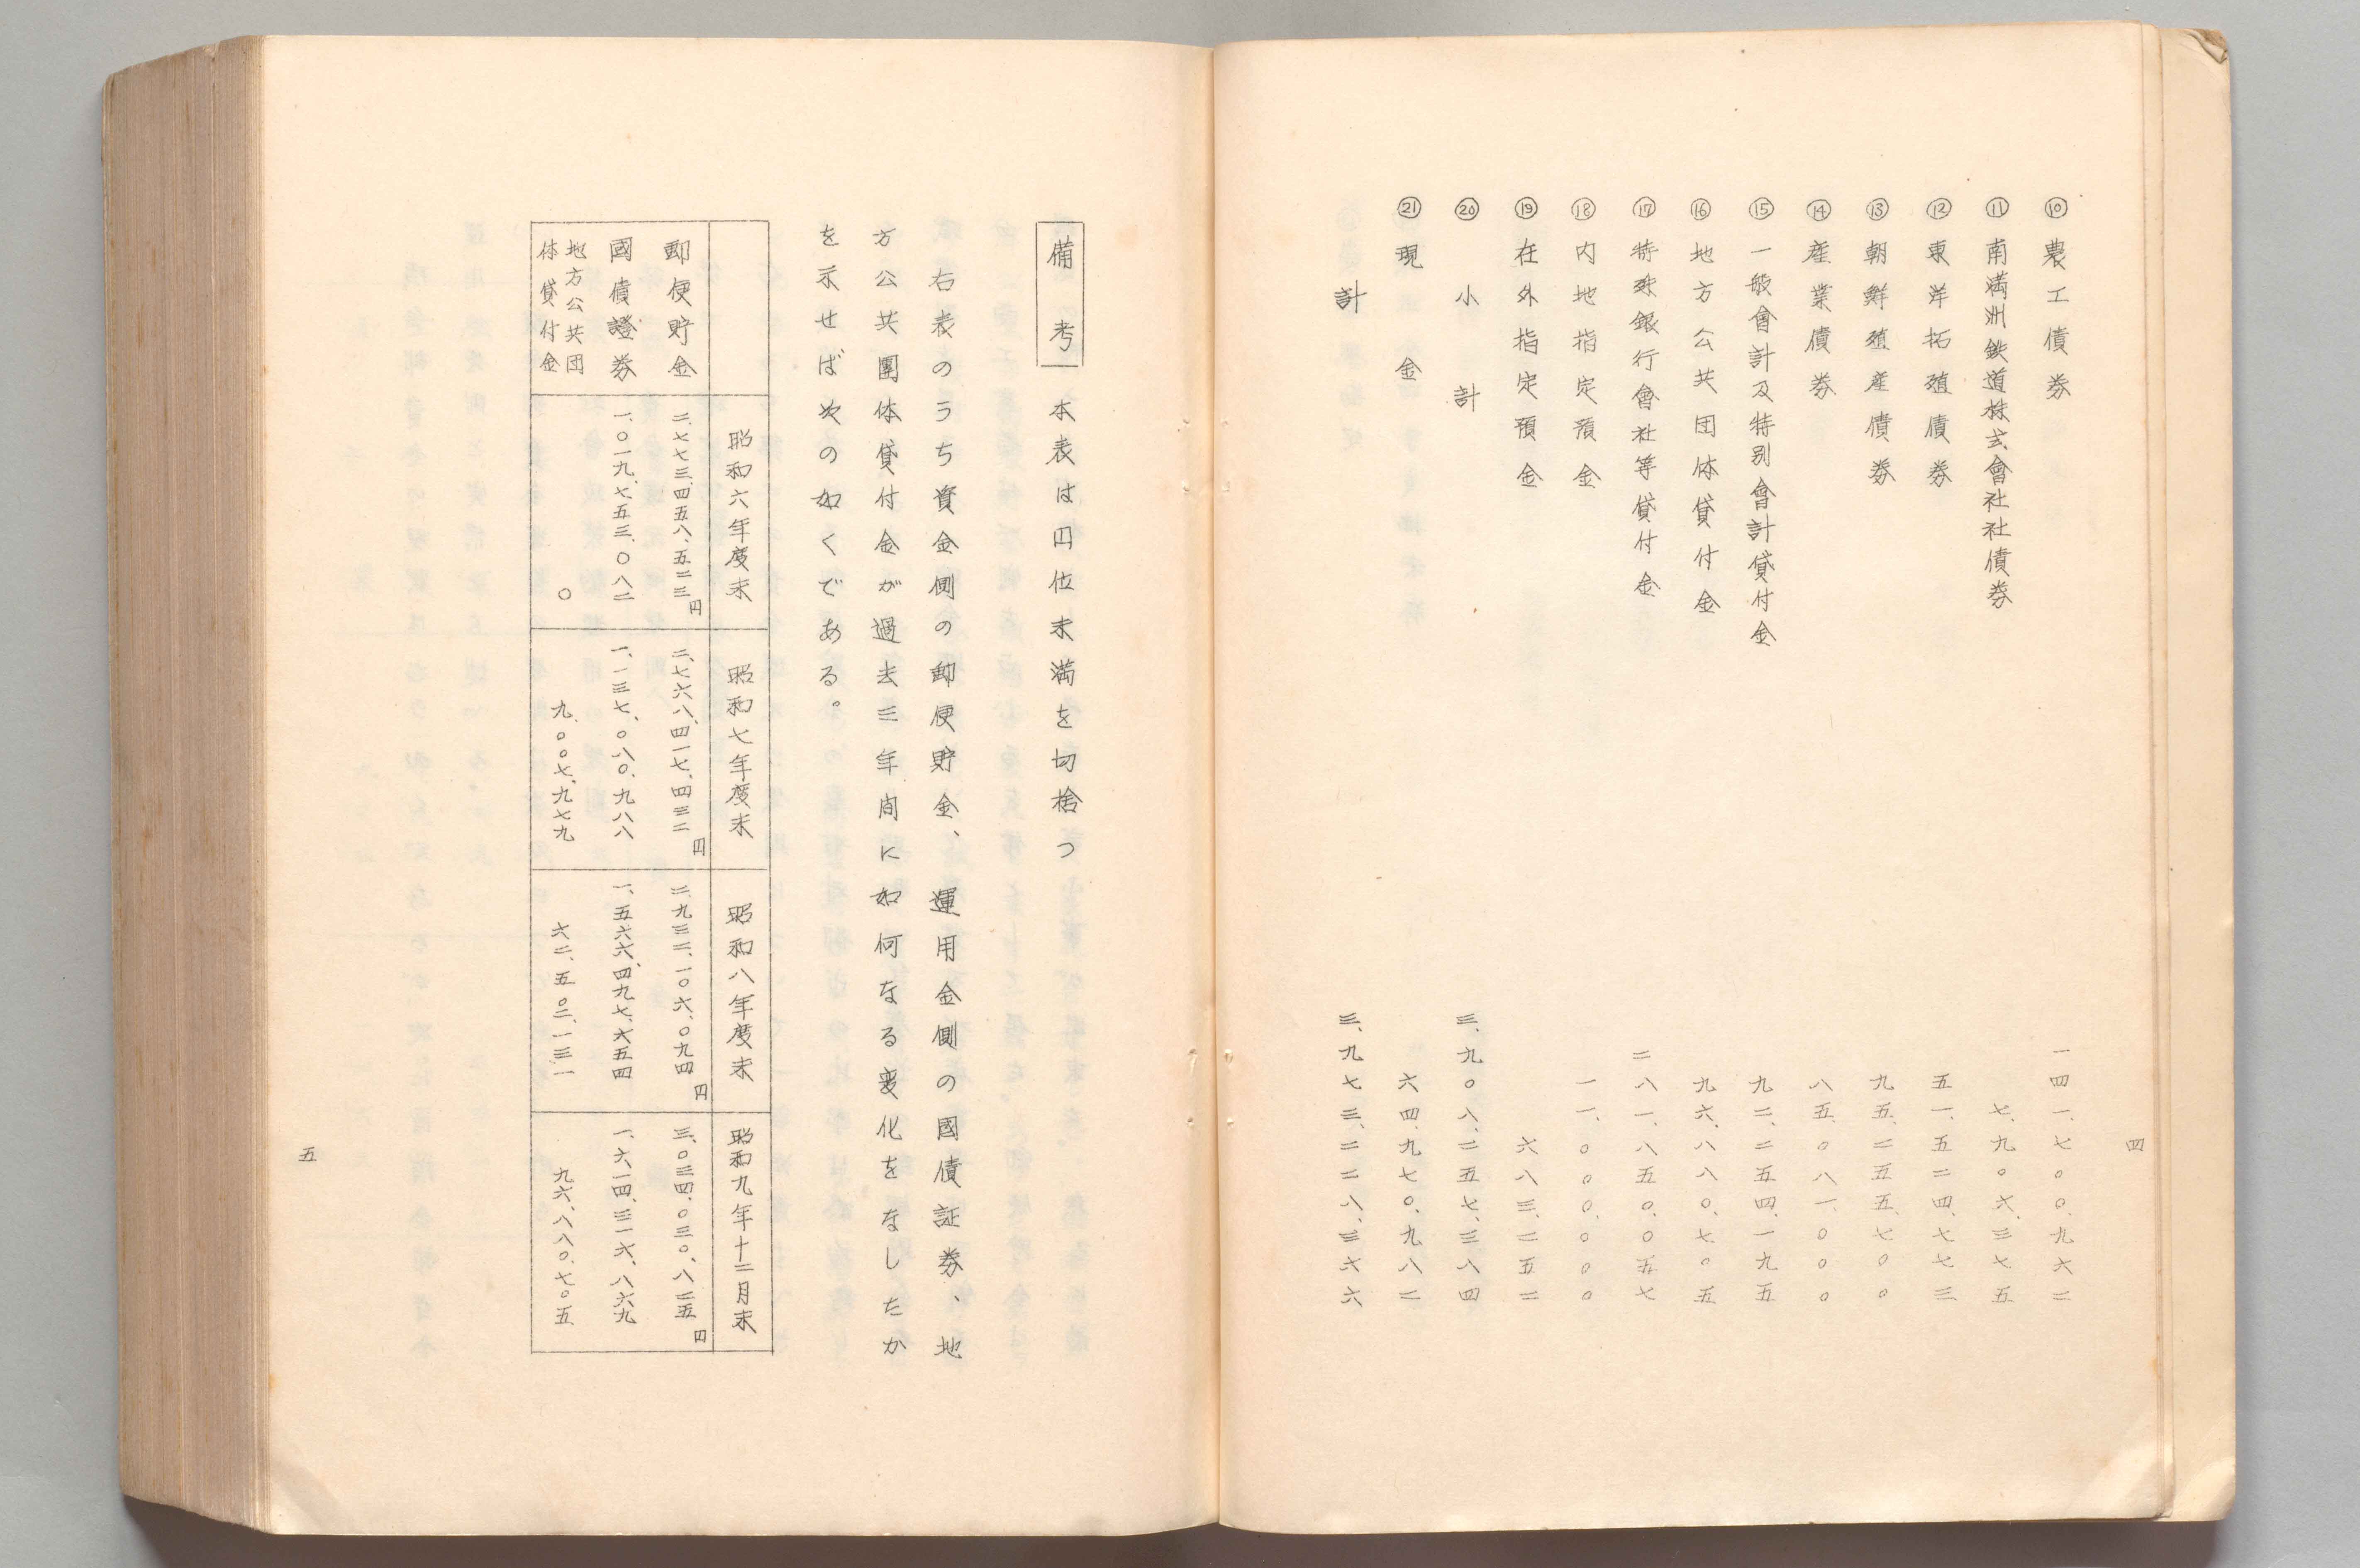 四
⑩農工債券 一四一、七〇〇、九六二
⑪南満洲鉄道株式會社社債券 七、九〇六、三七五
⑫東洋拓殖債券 五一、五二四、七七三
⑬朝鮮殖産債券 九五、二五五、七〇〇
⑭産業債券 八五、〇八一、〇〇〇
⑮一般會計及特別會計貸付金 九二、二五四、一九五
⑯地方公共団体貸付金 九六、八八〇、七〇五
⑰特殊銀行會社等貸付金 二八一、八五〇、〇五七
⑱内地指定預金 一一、〇〇〇、〇〇〇
⑲在外指定預金 六八三、二五二
⑳小計 三、九〇八、二五七、三八四
㉑現金 六四、九七〇、九八二
計 三、九七三、二二八、三六六
備考 本表は円位未満を切捨つ
右表のうち資金側の郵便貯金、運用金側の國債証券、地
方公共團体貸付金が過去三年間に如何なる変化をなしたか
を示せば次の如くである。
昭和六年度末 昭和七年度末 昭和八年度末 昭和九年十二月末
郵便貯金 二、七七三、四五八、五二三円 二、七六八、四一七、四三二円 二、九三二、一〇六、〇九四円 三、〇三四、〇三〇、八二五円
國債證券 一、〇一九、七五三、〇八二 一、一三七、〇八〇、九八八 一、五六六、四九七、六五四 一、六一四、三一六、八六九
地方公共団
体貸付金 〇 九、〇〇七、九七九 六二、五〇二、一三一 九六、八八〇、七〇五
五